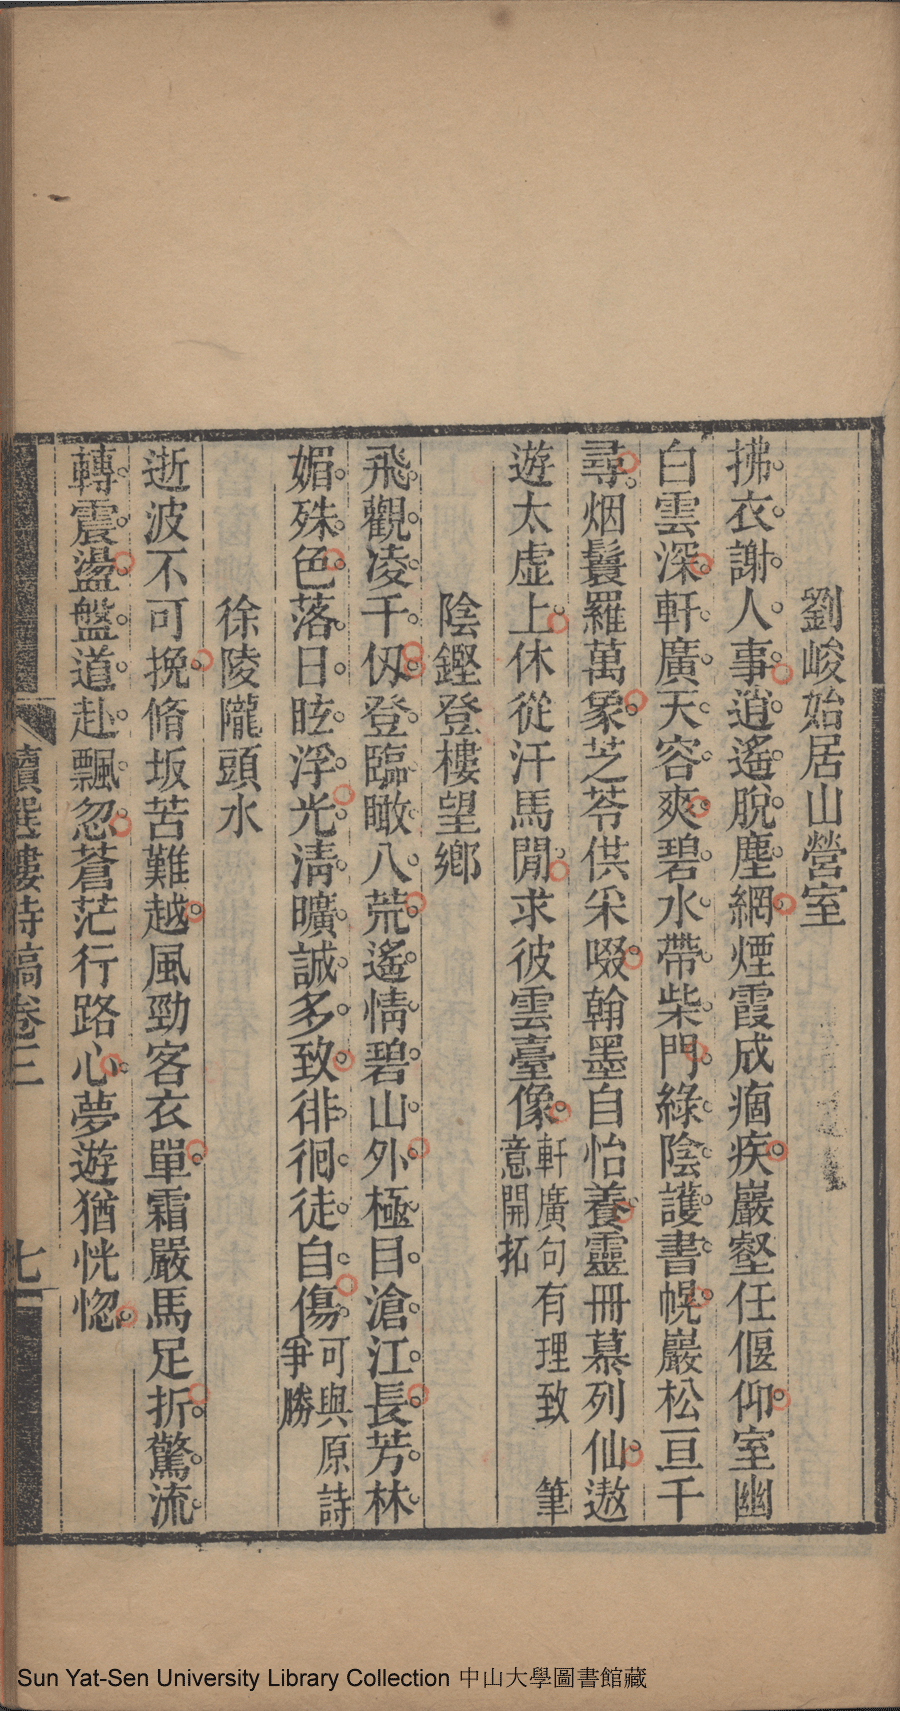 劉峻始居山營室
拂衣謝人事逍遙脫塵網煙霞成痼疾巖壑任偃仰室幽
白雲深軒廣天容爽碧水帶柴門綠陰護書幌巖松亘千
尋烟鬟羅萬象芝苓供采啜翰墨自怡養靈冊慕列仙遨
遊太虛上休從汗馬閒求彼雲臺像軒廣句有理致 筆
意開拓
陰鏗登樓望鄉
飛觀凌千仭登臨瞰八荒遙情碧山外極目滄江長芳林
媚殊色落日眩浮光清曠誠多致徘徊徒自傷可與原詩
爭勝
徐陵隴頭水
逝波不可挽脩坂苦難越風勁客衣單霜嚴馬足折驚流
轉震盪盤道赴飄忽蒼茫行路心夢遊猶恍惚
讀選樓詩稿卷三
七
Sun Yat-Sen University Library Collection 中山大學圖書館藏